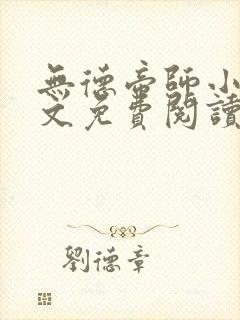 無德帝師小
文免費閱讀
劉德章